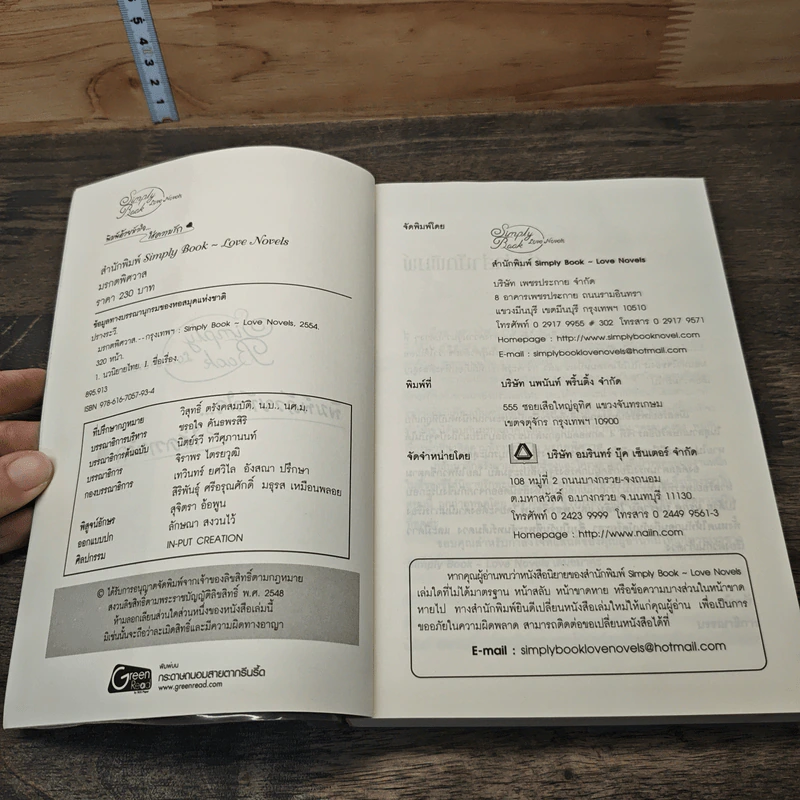 5 4 3 2 1
Simply
Book Love Novels
สำนักพิมพ์ Simply Book ~ Love Novels
มรกตพิศวาส
ราคา 230 บาท
ข้อมูลทางบรรณานุกรมของหอสมุดแห่งชาติ
ปรางระวี.
มรกตพิศวาส.--กรุงเทพฯ : Simply Book - Love Novels, 2554.
320 หน้า.
1. นวนิยายไทย. I. ชื่อเรื่อง.
895.913
ISBN 978-616-7057-93-4
ที่ปรึกษากฎหมาย วิสุทธิ์ ตรังคสมบัติ, น.บ., นศ.ม.
บรรณาธิการบริหาร ขรอใจ คันธพรสิริ
บรรณาธิการต้นฉบับ นิตย์รวี ทวีศุภานนท์
บรรณาธิการ จิราพร ไตรยวุฒิ
กองบรรณาธิการ เทวินทร์ ยศวิไล อังสณา ปรึกษา
สิริพันธุ์ ศรีอรุณศักดิ์ มธุรส เหมือนพลอย
สุจิตรา อ้อพูน
พิสูจน์อักษร
ออกแบบปก ลักษณา สงวนไว้
ศิลปกรรม IN-PUT CREATION
© ได้รับการอนุญาตจัดพิมพ์จากเจ้าของลิขสิทธิ์ตามกฎหมาย
สงวนลิขสิทธิ์ตามพระราชบัญญัติลิขสิทธิ์ พ.ศ. 2548
ห้ามลอกเลียนส่วนใดส่วนหนึ่งของหนังสือเล่มนี้
มิเช่นนั้นจะถือว่าละเมิดสิทธิ์และมีความผิดทางอาญา
Green
Read
พิมพ์บน
กระดาษถนอมสายตากรีนรี้ด
www.greenread.com
จัดพิมพ์โดย
Simply
Book Love Novels
สำนักพิมพ์ Simply Book - Love Novels
บริษัท เพชรประกาย จำกัด
8 อาคารเพชรประกาย ถนนรามอินทรา
แขวงมีนบุรี เขตมีนบุรี กรุงเทพฯ 10510
โทรศัพท์ 0 2917 9955 # 302 โทรสาร 0 2917 9571
Homepage : http://www.simplybooknovel.com
E-mail : simplybooklovenovels@hotmail.com
พิมพ์ที่ บริษัท นพนันท์ พริ้นติ้ง จำกัด
555 ซอยเสือใหญ่อุทิศ แขวงจันทรเกษม
เขตจตุจักร กรุงเทพฯ 10900
จัดจำหน่ายโดย บริษัท อมรินทร์ บุ๊ค เซ็นเตอร์ จำกัด
108 หมู่ที่ 2 ถนนบางกรวย-จงถนอม
ต.มหาสวัสดิ์ อ.บางกรวย จ.นนทบุรี 11130
โทรศัพท์ 0 2423 9999 โทรสาร 0 2449 9561-3
Homepage : http://www.naiin.com
หากคุณผู้อ่านพบว่าหนังสือนิยายของสำนักพิมพ์ Simply Book - Love Novels
เล่มใดที่ไม่ได้มาตรฐาน หน้าสลับ หน้าขาดหาย หรือข้อความบางส่วนในหน้าขาด
หายไป ทางสำนักพิมพ์ยินดีเปลี่ยนหนังสือเล่มใหม่ให้แก่คุณผู้อ่าน เพื่อเป็นการ
ขออภัยในความผิดพลาด สามารถติดต่อขอเปลี่ยนหนังสือได้ที่
E-mail : simplybooklovenovels@hotmail.com